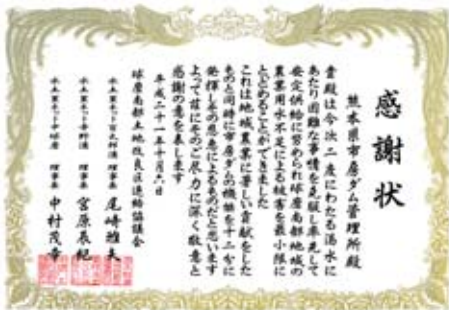 感謝状
熊本県市房ダム管理所殿
貴殿は今次二度にわたる渇水に
あたり困難な事情を克服し率先して
安定供給に努められ球磨南部地域の
農業用水不足による被害を最小限に
とどめることができました
これは地域農業に著しい貢献をした
ものと同時に市房ダムの機能を十二分に
発揮しその恩恵によるものだと思います
よって茲にそのご尽力に深く敬意と
感謝の意を表します
平成二十一年十月六日
球磨南部土地改良区連絡協議会
水土里ネット百太郎溝 理事長 尾崎雅夫
水土里ネット幸野溝 理事長 宮原辰紀
水土里ネット中球磨 理事長 中村茂幸